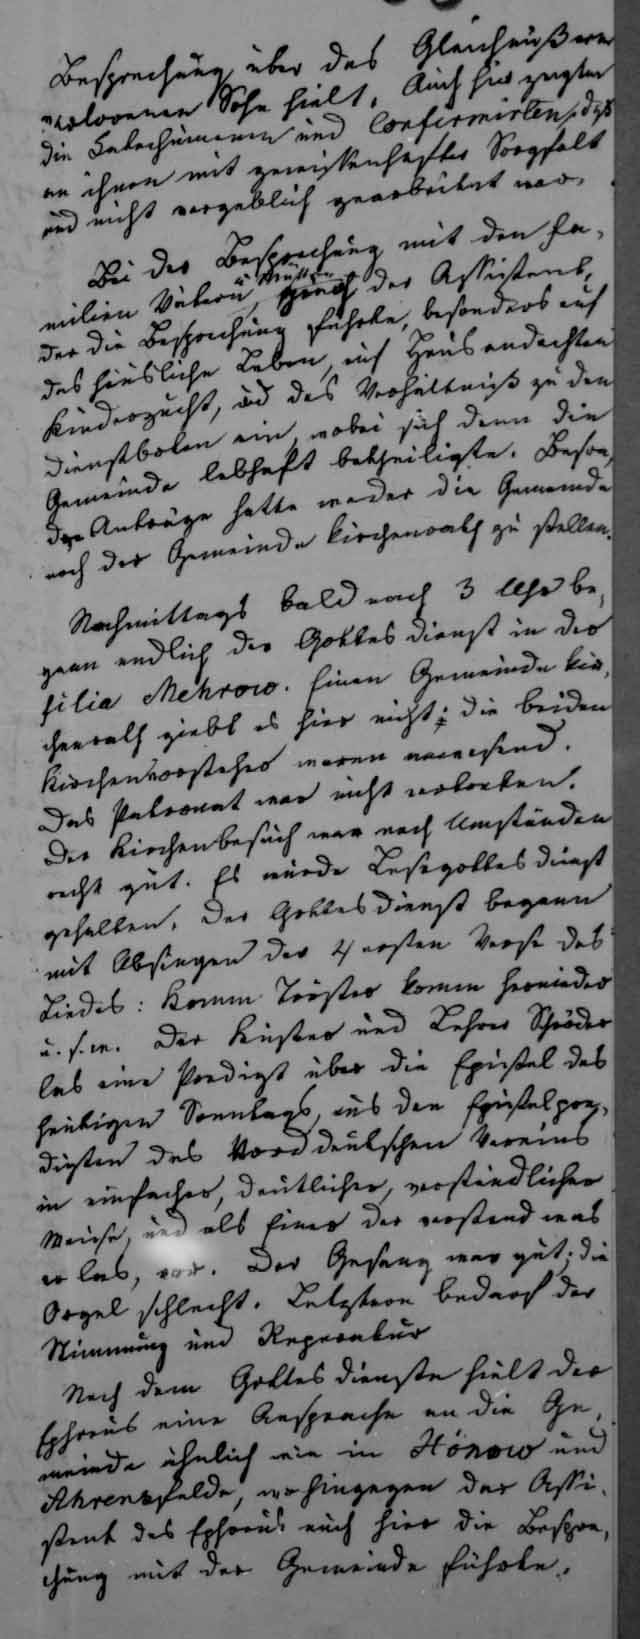 Besprechung über das Gleichniß vom
verlorenen Sohn hielt. Auch hier zeigten
die Catechumenen und Confirmirten, daß
an ihnen mit gewissenhafter Sorgfalt
und nicht vergeblich gearbeitet war.
Bei der Besprechung mit den Fa-
milien Vätern u Müttern ging der Assistent,
der die Besprechung führte, besonders auf
das häusliche Leben, auf Hausandachten
Kinderzucht, u d das Verhältniß zu den
Dienstboten ein, wobei sich denn die
Gemeinde lebhaft betheiligte. Beson-
dre Anträge hatte weder die Gemeinde
noch der Gemeinde Kirchenrath zu stellen.
Nachmittags bald nach 3 Uhr be-
gann endlich der Gottesdienst in der
filia Mehrow. Einen Gemeinde Kir-
chenrath giebt es hier nicht; die beiden
Kirchenvorsteher waren anwesend.
Das Patronat war nicht vertreten.
Der Kirchenbesuch war nach Umständen
recht gut. Es wurde Lesegottesdienst
gehalten. Der Gottesdienst begann
mit Absingen der 4 ersten Verse des
Liedes: Komm Tröster komm hernieder
u. s. w. Der Küster und Lehrer Schröder
las eine Predigt über die Epistel des
heutigen Sonntags, aus den Epistelpre-
digten des Norddeutschen Vereins
in einfacher, deutlicher, verständlicher
Weise, und als Einer der verstand was
er las, vor. Der Gesang war gut; die
Orgel schlecht. Letztere bedarf der
Stimmung und Reparatur
Nach dem Gottesdienste hielt der
Ephorus eine Ansprache an die Ge-
meinde ähnlich wie in Hönow und
Ahrensfelde, wohingegen der Assi-
stent des Ephorus auch hier die Bespre-
chung mit der Gemeinde führte.